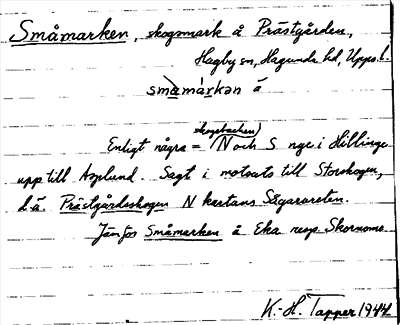 Småmarken, skogsmark å Prästgården,
Hagby sn, Hagunda hd, Upps. l.
småmàrkən å
skogsbacken)
Enligt några = (N och S nge i Hillinge
upp till Asplund. Sagt i motsats till Storskogen,
d.ä. Prästgårdsskogen N kartans Sågarareten.
Jämför Småmarken å Eka resp. Skornome.
K.-H. Tapper 1944